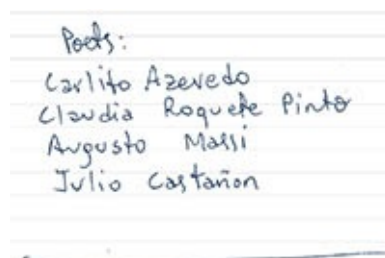 Poets:
Carlito Azevedo
Claudia Roquete Pinto
Augusto Massi
Julio Castañon